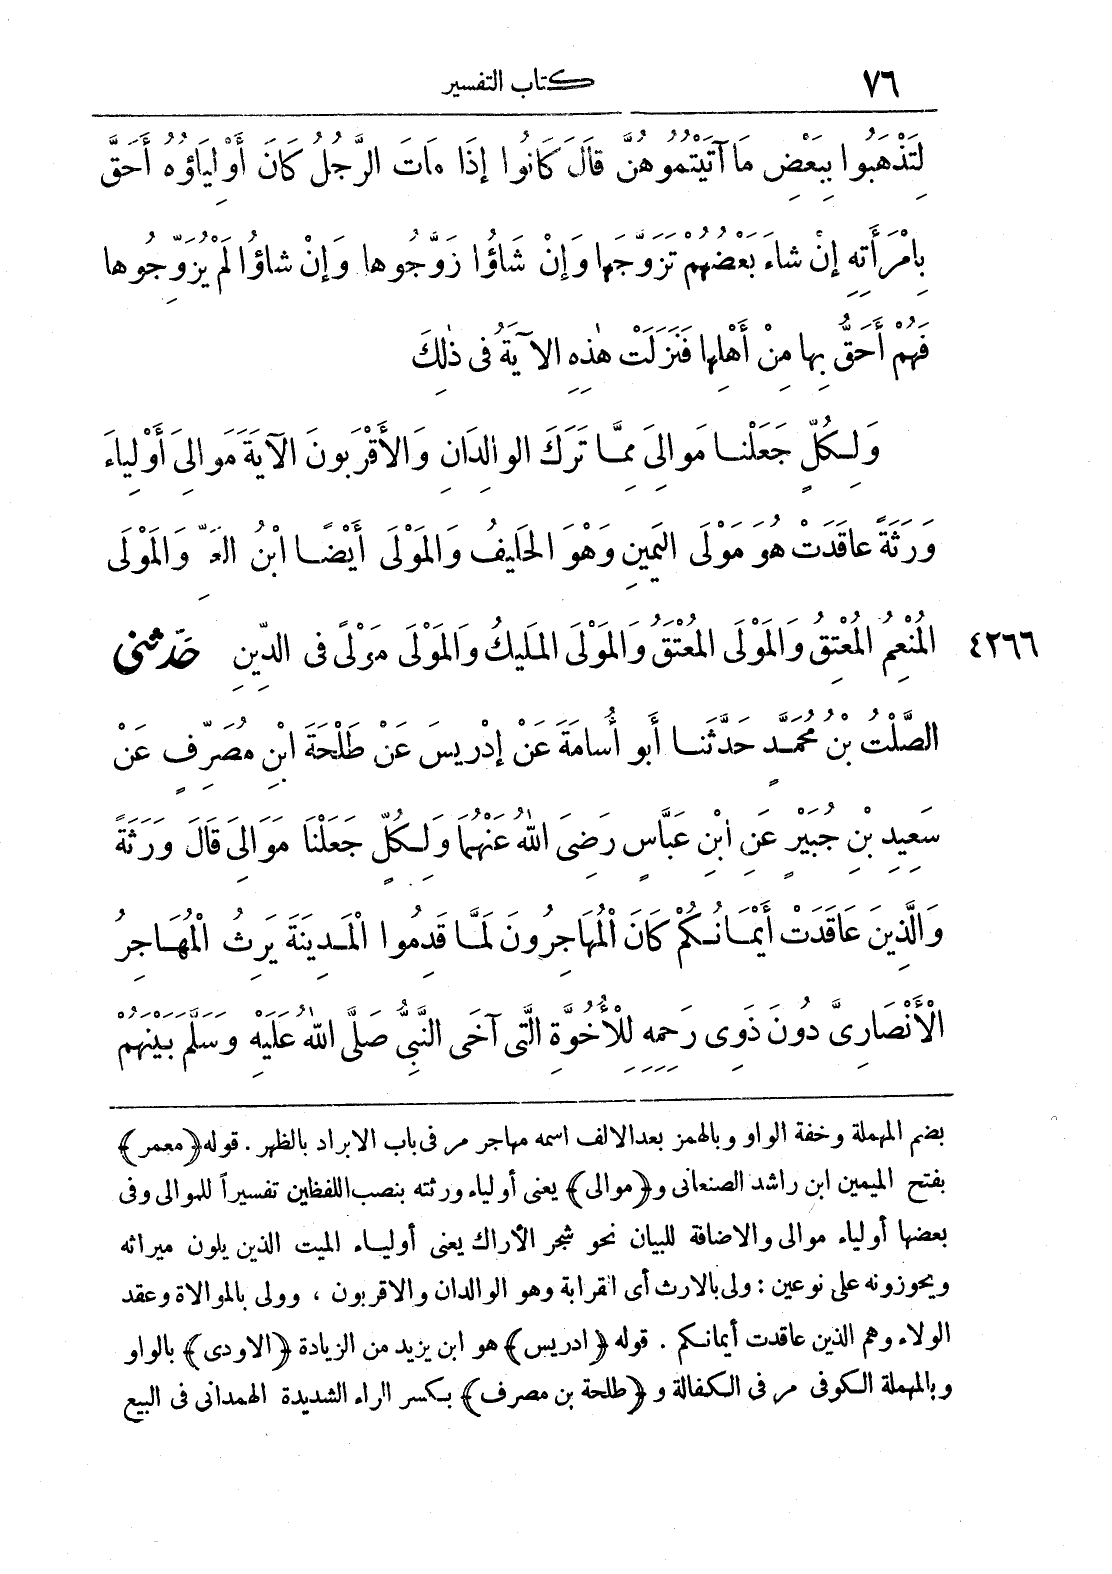 ٧٦ كتاب التفسير
لِتَذْهَبُوا بِبَعْضِ مَا آتَيْتُمُوهُنَّ قَالَ كَانُوا إِذَا مَاتَ الرَّجُلُ كَانَ أَوْلِيَاؤُهُ أَحَقَّ
بِامْرَأَتِهِ إِنْ شاءَ بَعْضُهُمْ تَزَوَّجَها وَإِنْ شَاؤُا زَوَّجُوها وَإِنْ شاؤُا لَمْ يُزَوِّجُوها
فَهُمْ أَحَقُّ بِها مِنْ أَهْلِها فَنَزَلَتْ هٰذِهِ الآيَةُ فى ذٰلِكَ
وَلِكُلٍّ جَعَلْنا مَوالِىَ مِمَّا تَرَكَ الوالِدَانِ وَالأَقْرَبونَ الآيَةَ مَوالِىَ أَوْلِياءَ
وَرَثَةً عاقَدَتْ هُوَ مَوْلَى اليَمِينِ وَهْوَ الحَلِيفُ وَالمَوْلَى أَيْضًا ابْنُ العَمِّ وَالمَوْلَى
المُنْعِمُ المُعْتِقُ وَالمَوْلَى المُعْتَقُ وَالمَوْلَى المَلِيكُ وَالمَوْلَى مَوْلًى فى الدِّينِ حَدَّثنى ٤٢٦٦
الصَّلْتُ بْنُ مُحَمَّدٍ حَدَّثَنا أَبو أُسامَةَ عَنْ إِدْرِيسَ عَنْ طَلْحَةَ ابْنِ مُصَرِّفٍ عَنْ
سَعِيدِ بْنِ جُبَيْرٍ عَنِ ابْنِ عَبَّاسٍ رَضِىَ اللهُ عَنْهُمَا وَلِكُلٍّ جَعَلْنَا مَوَالِىَ قَالَ وَرَثَةً
وَالَّذِينَ عَاقَدَتْ أَيْمَانُكُمْ كَانَ الْمُهَاجِرُونَ لَمَّا قَدِمُوا الْمَدِينَةَ يَرِثُ الْمُهَاجِرُ
الْأَنْصَارِىَّ دُونَ ذَوِى رَحِمِهِ لِلْأُخُوَّةِ الَّتِى آخَى النَّبِىُّ صَلَّى اللهُ عَلَيْهِ وَسَلَّمَ بَيْنَهُمْ
بضم المهملة وخفة الواو وبالهمز بعد الالف اسمه مهاجر مر فى باب الابراد بالظهر . قوله ﴿معمر﴾
بفتح الميمين ابن راشد الصنعانى و﴿موالى﴾ يعنى أولياء ورثته بنصب اللفظين تفسيراً للموالى وفى
بعضها أولياء موالى والاضافة للبيان نحو شجر الأراك يعنى أولياء الميت الذين يلون ميراثه
ويحوزونه على نوعين : ولى بالارث أى القرابة وهو الوالدان والاقربون ، وولى بالموالاة وعقد
الولاء وهم الذين عاقدت أيمانكم . قوله ﴿ادريس﴾ هو ابن يزيد من الزيادة ﴿الاودى﴾ بالواو
وبالمهملة الكوفى مر فى الكفالة و ﴿طلحة بن مصرف﴾ بكسر الراء الشديدة الهمدانى فى البيع